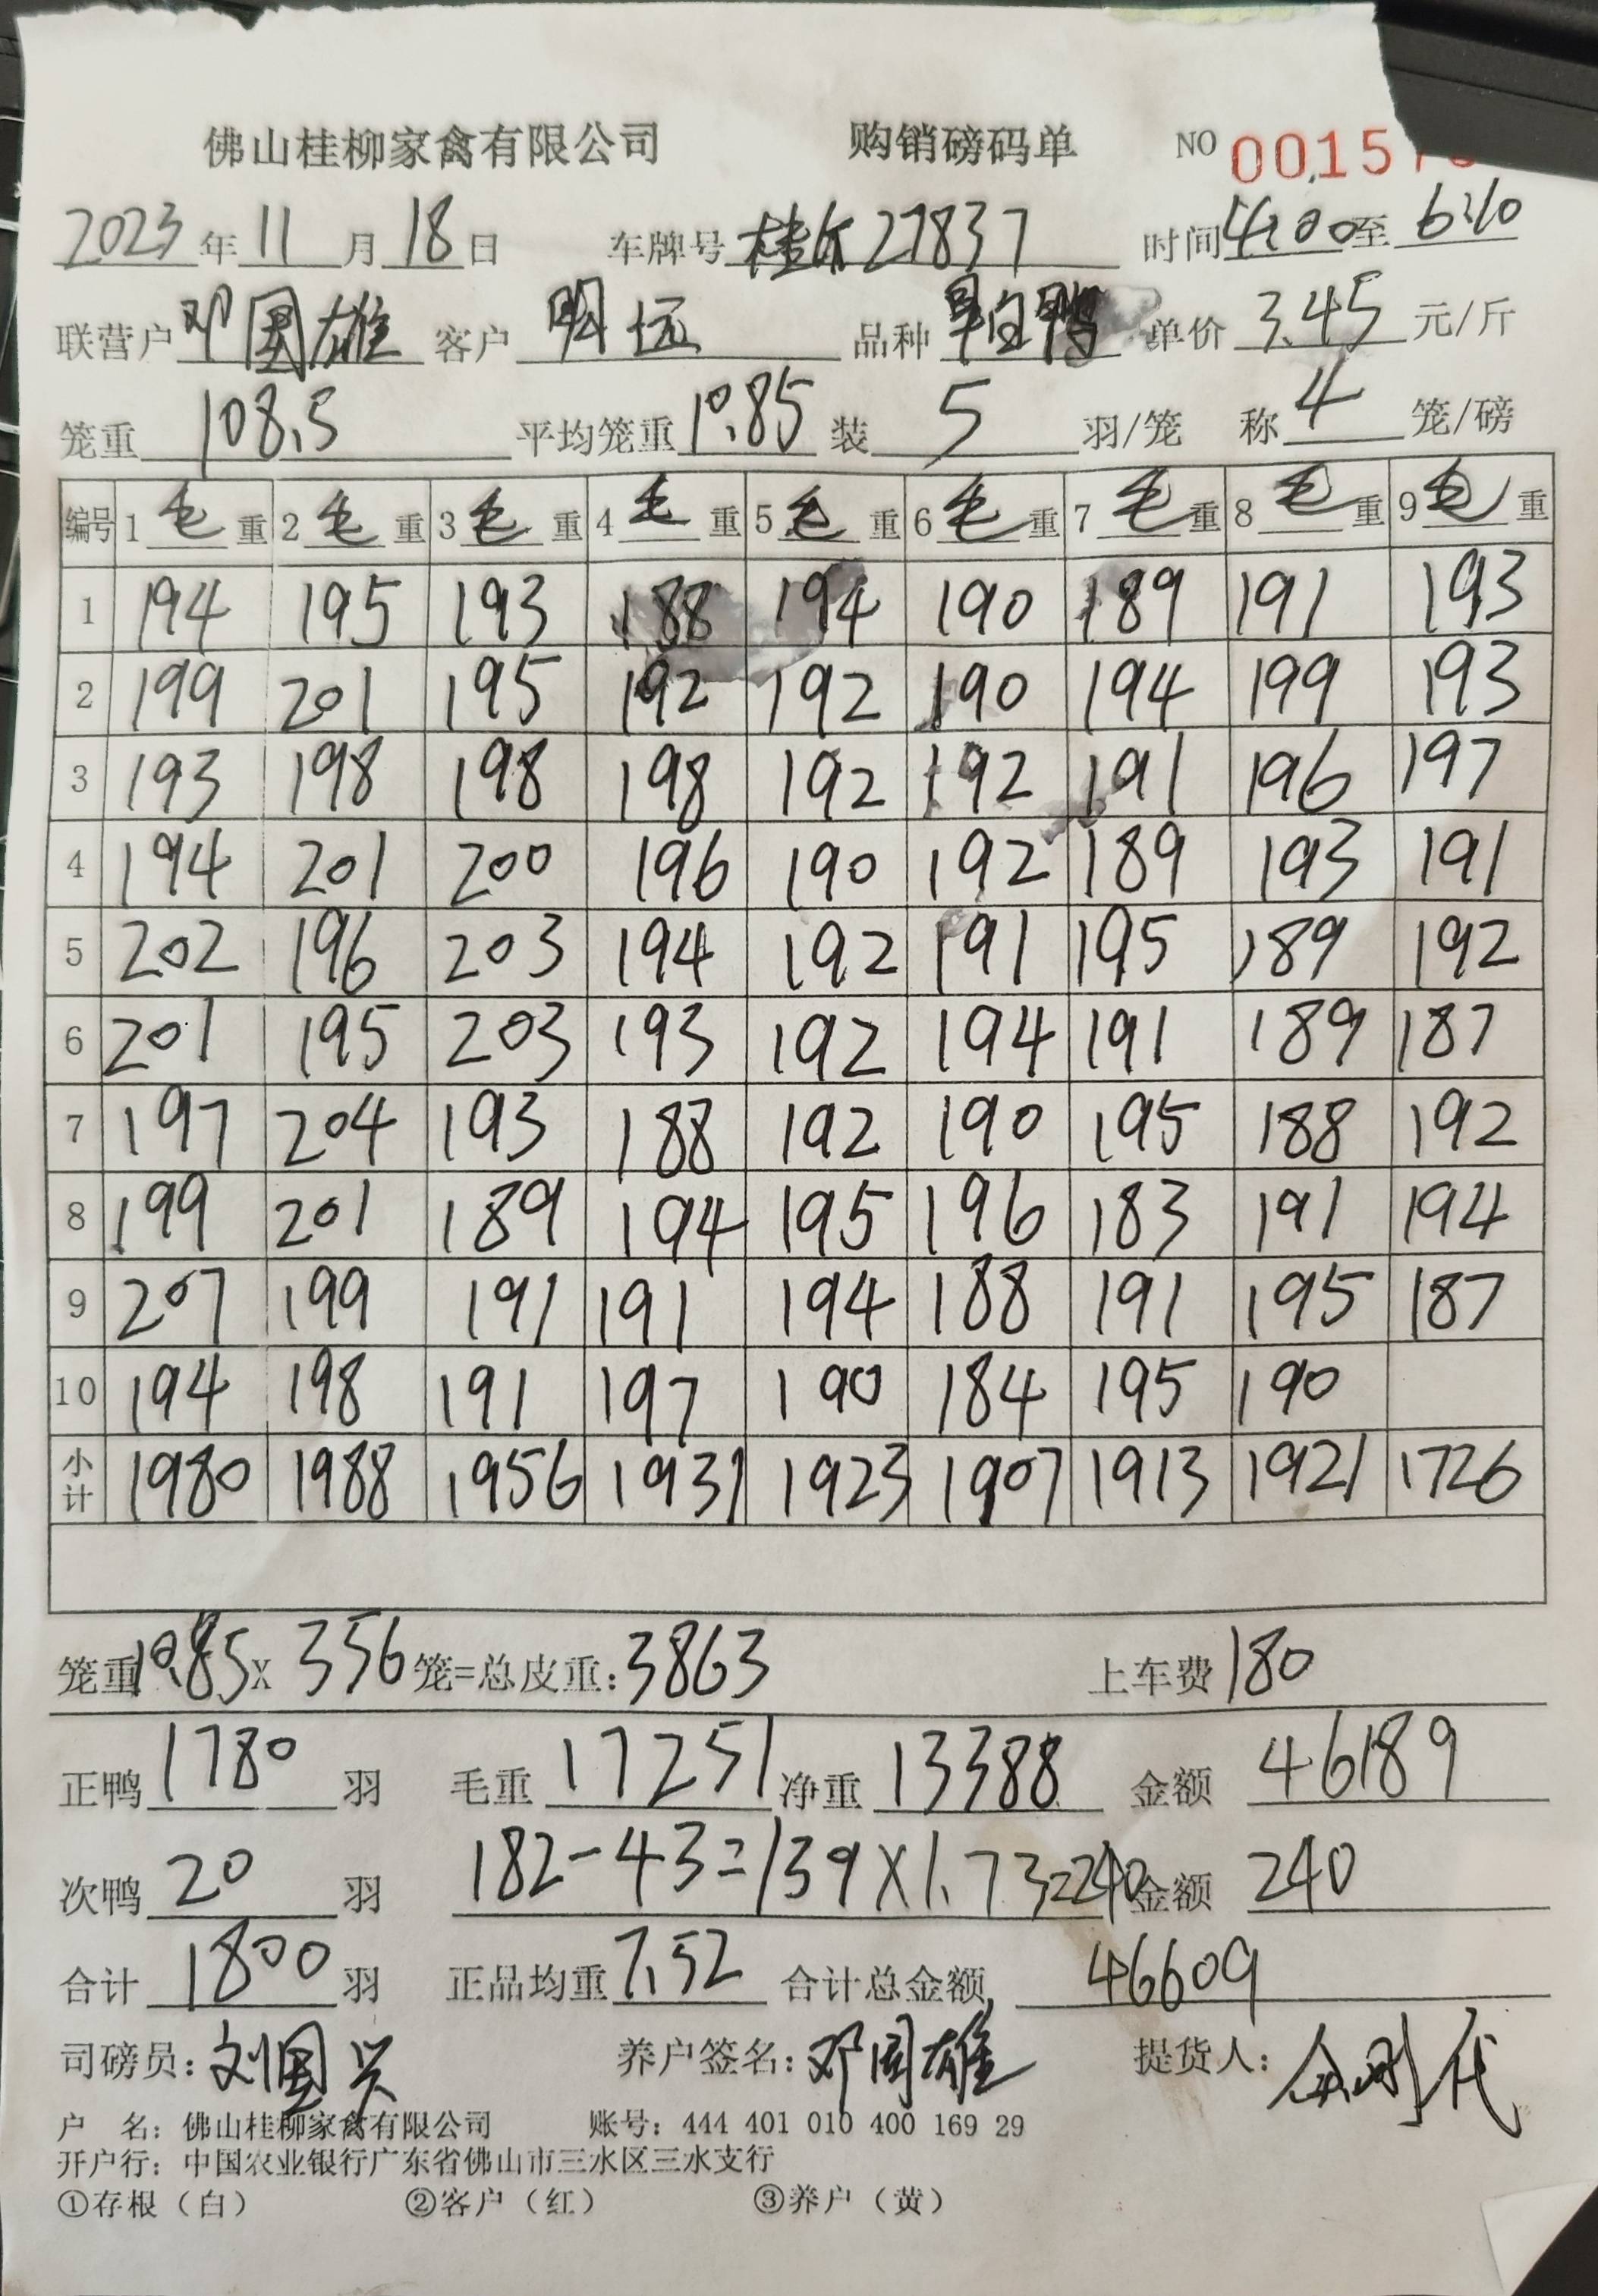 佛山桂柳家禽有限公司 购销磅码单 NO 0015
2023年11月18日 车牌号 桂 27837 时间4:00至6:10
联营户 邓国雄 客户 明远 品种 单价 3.45 元/斤
笼重 108.5 平均笼重 10.85 装 5 羽/笼 称 4 笼/磅
编号 1毛重 2毛重 3毛重 4毛重 5毛重 6毛重 7毛重 8毛重 9毛重
1 194 195 193 188 194 190 189 191 193
2 199 201 195 192 192 190 194 199 193
3 193 198 198 198 192 192 191 196 197
4 194 201 200 196 190 192 189 193 191
5 202 196 203 194 192 191 195 189 192
6 201 195 203 193 192 194 191 189 187
7 197 204 193 188 192 190 195 188 192
8 199 201 189 194 195 196 183 191 194
9 207 199 191 191 194 188 191 195 187
10 194 198 191 197 190 184 195 190
小计 1980 1988 1956 1931 1923 1907 1913 1921 1726
笼重10.85X 356笼=总皮重:3863 上车费180
正鸭 1780 羽 毛重 17251 净重 13388 金额 46189
次鸭 20 羽 182-43=139×1.73=240 金额 240
合计 1800 羽 正品均重 7.52 合计总金额 46609
司磅员:刘国兴 养户签名:邓国雄 提货人: 代
户 名:佛山桂柳家禽有限公司 账号:444 401 010 400 169 29
开户行:中国农业银行广东省佛山市三水区三水支行
①存根(白) ②客户(红) ③养户(黄)